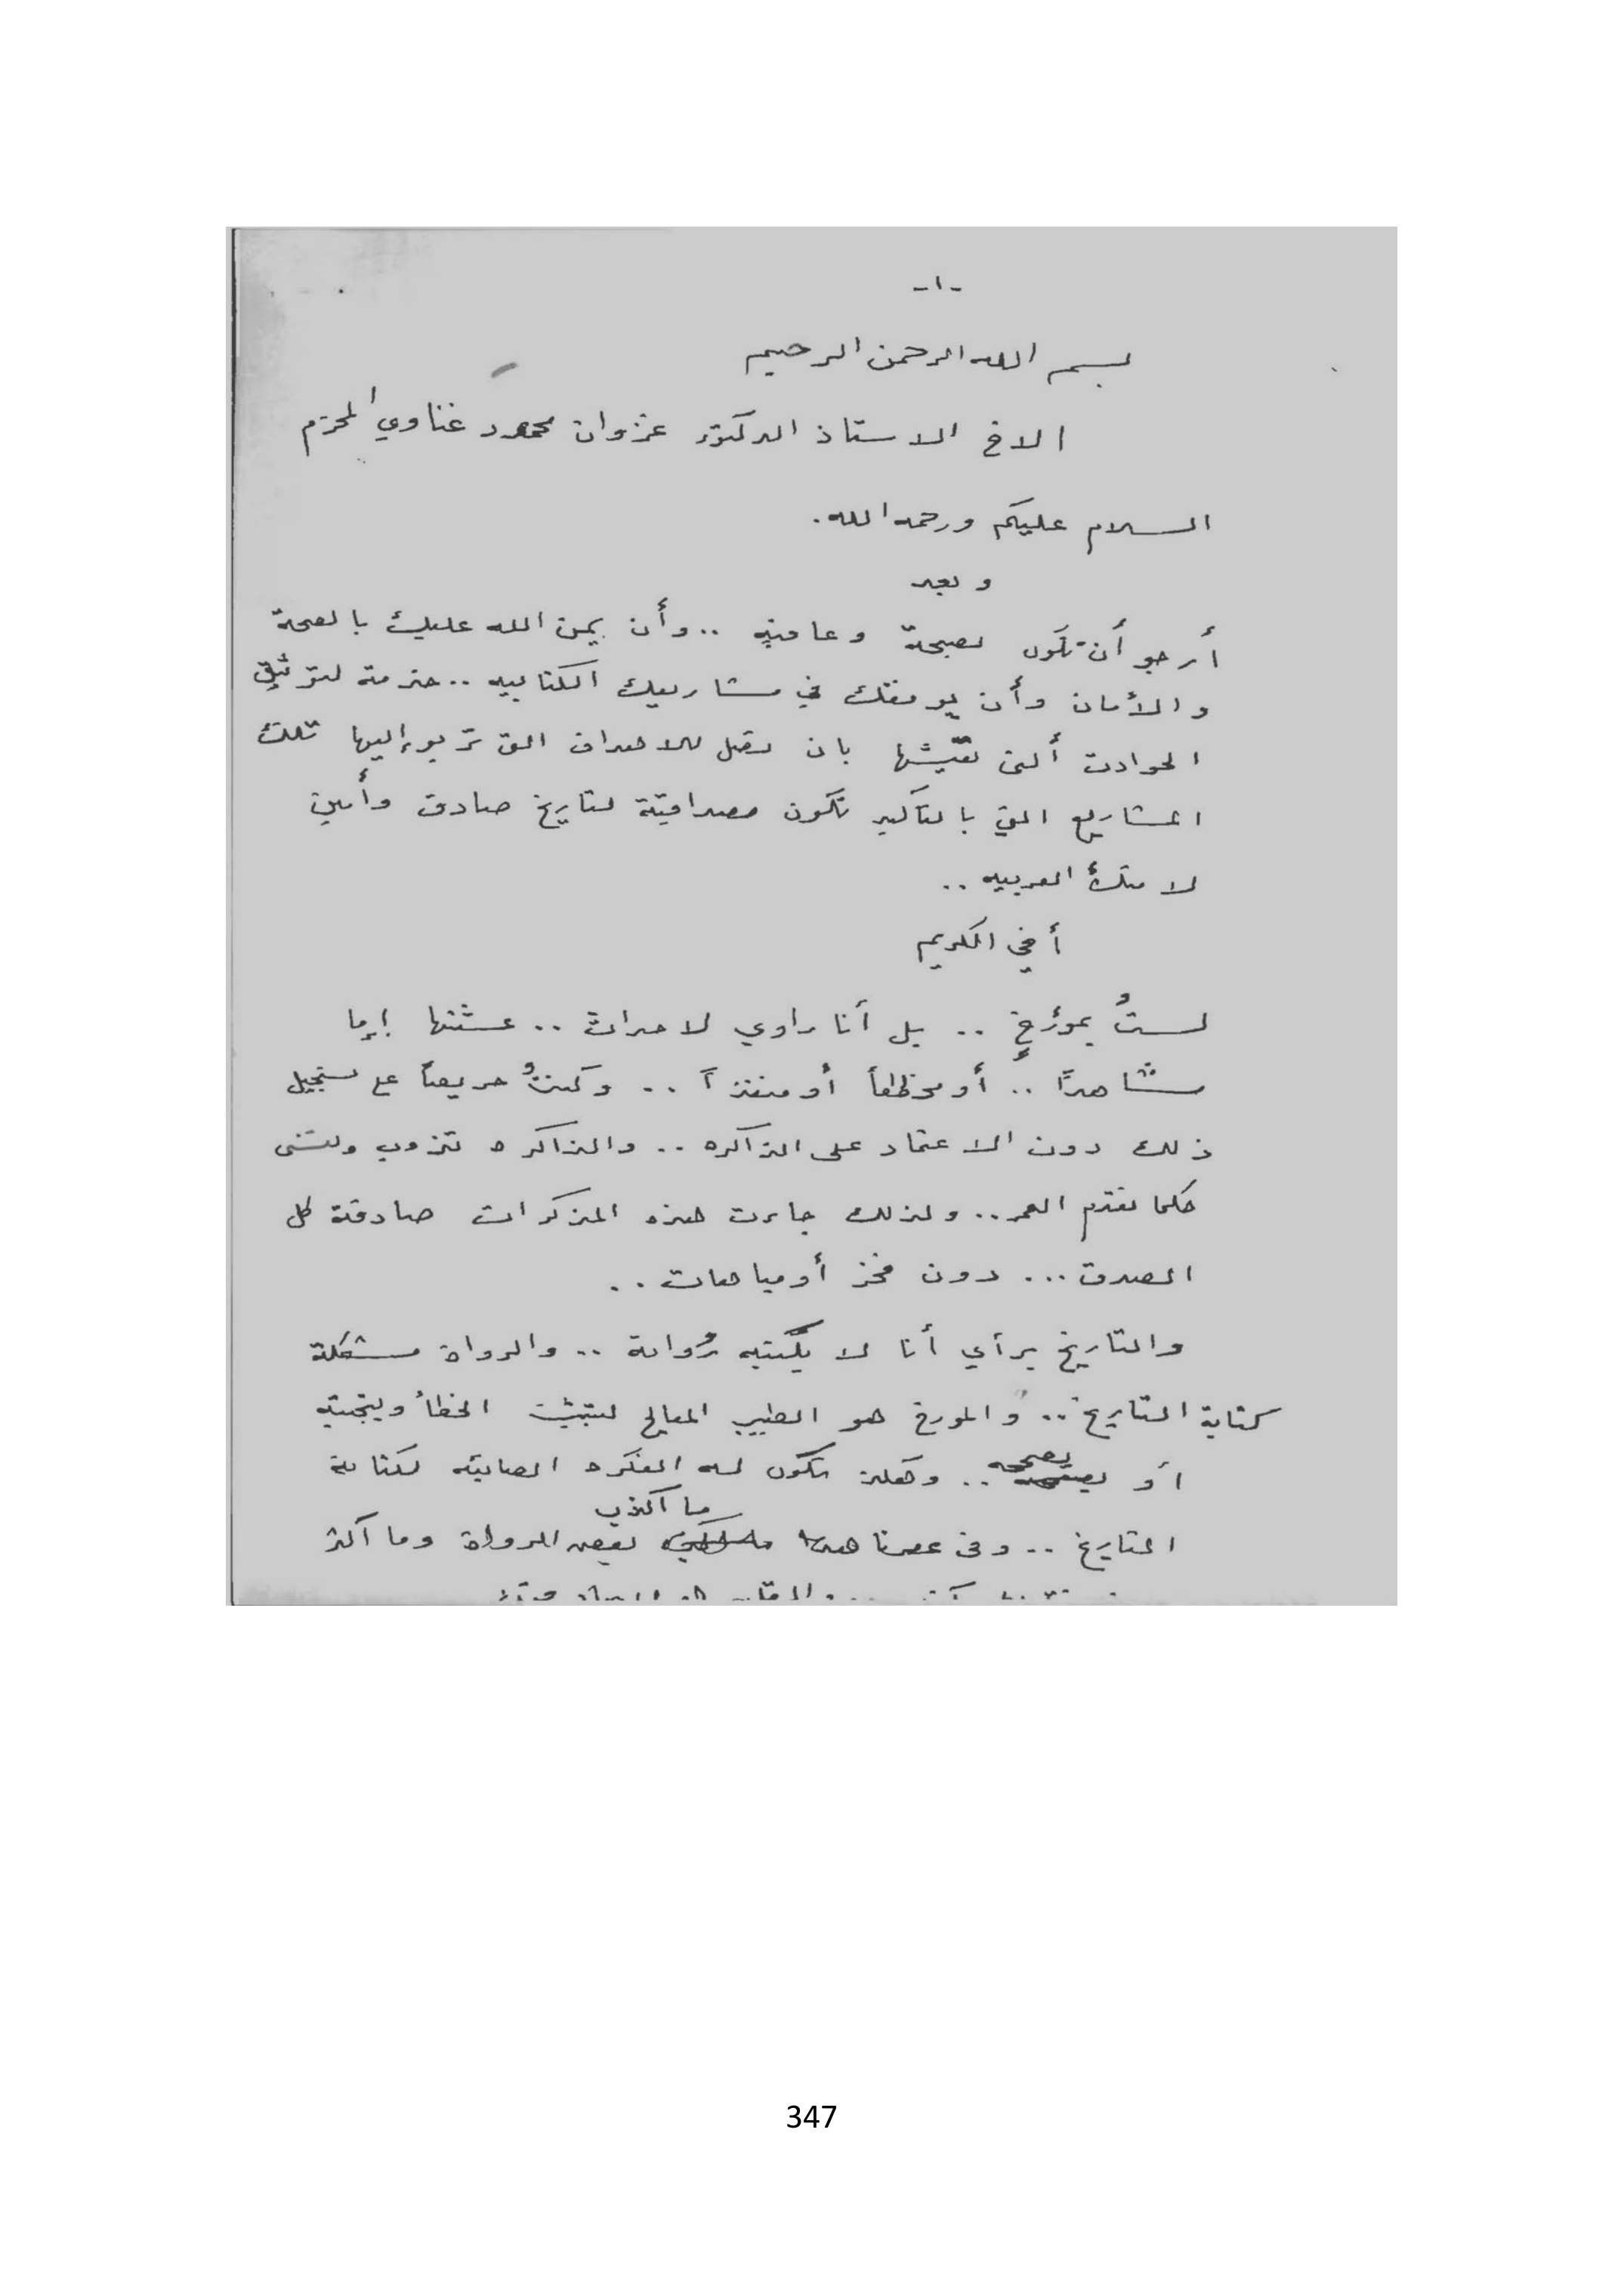 -١-
بسم الله الرحمن الرحيم
الاخ الاستاذ الدكتور غزوان محمود غناوي المحترم
السلام عليكم ورحمه الله.
وبعد
أرجو أن تكون بصحة وعافيه .. وأن يمن الله عليك بالصحة
والأمان وأن يوفقك في مشاريعك الكتابيه .. خدمة لتوثيق
الحوادث ألتي تعيشها بان تصل للاهداف التي تربو إليها تلك
المشاريع التي بالتأكيد تكون مصداقية لتاريخ صادق وأمين
لامتك العربيه ..
أخي الكريم
لستُ بمؤرخٍ .. بل أنا راوي لاحداث .. عشتها إما
مشاهداً .. أو مخططاً أو منفذاً .. وكنتُ حريصاً على تسجيل
ذلك دون الاعتماد على الذاكره .. والذاكره تذوب وتنسى
كلما تقدم العمر .. ولذلك جاءت هذه المذكرات صادقة كل
الصدق ... دون فخر أو مباهات ..
والتاريخ برأي أنا لا يكتبه رُواة .. والرواة مشكلة
كتابة التاريخ .. والمورخ هو الطبيب المعالج ليثبت الخطأ ويتجنبه
أو يصححه .. وهكذا تكون له الفكره الصائبه لكتابة
التاريخ .. وفي عصرنا هذا ما أكذب بعض الرواة وما أكثر
347